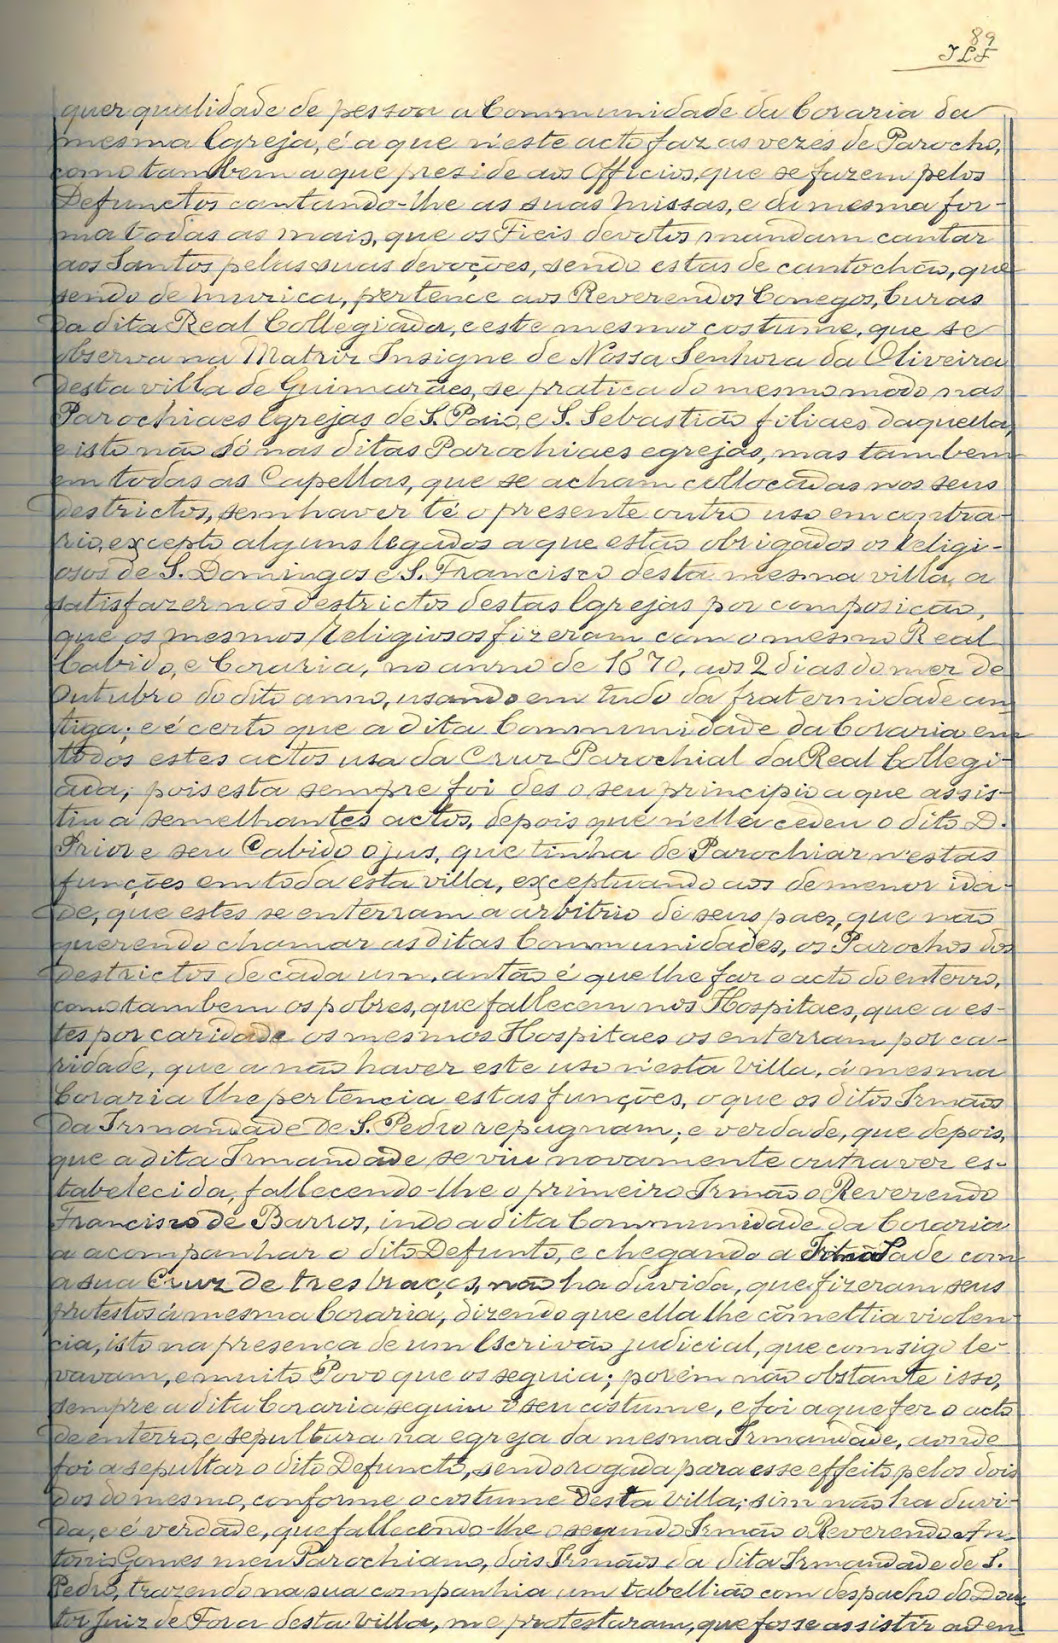 89
quer qualidade de pessoa a Communidade da Coraria da
mesma Egreja, é a que n'este acto faz as vezes de Parocho,
como tambem a que preside aos Officios, que se fazem pelos
Defunctos cantando-lhe as suas missas, e da mesma for-
ma todas as mais, que os Fieis devotos mandam cantar
aos Santos pelas suas devoções, sendo estas de cantochão, que
sendo de muzica, pertence aos Reverendos Conegos, Curas
da dita Real Collegiada, e este mesmo costume, que se
observa na Matriz Insigne de Nossa Senhora da Oliveira
desta villa de Guimarães, se pratica do mesmo modo nas
Parochiaes Egrejas de S. Paio, e S. Sebastião filiaes daquella,
e isto não só nas ditas Parochiaes egrejas, mas tambem
em todas as Capellas, que se acham collocadas nos seus
destrictos, sem haver té o presente outro uso em contra-
rio, excepto alguns legados a que estão obrigados os Religi-
osos de S. Domingos e S. Francisco desta mesma villa, a
satisfazer nos destrictos destas Egrejas por composição,
que os mesmos Religiosos fizeram com o mesmo Real
Cabido, e Coraria, no anno de 1670, aos 2 dias do mez de
Outubro do dito anno, usando em tudo da fraternidade an-
tiga; e é certo que a dita Communidade da Coraria em
todos estes actos usa da Cruz Parochial da Real Collegi-
ada, pois esta sempre foi des o seu principio a que assis-
tiu a semelhantes actos, depois que n'ella cedeu o dito D.
Prior e seu Cabido o jus, que tinha de Parochiar n'estas
funções em toda esta villa, exceptuando aos de menor ida-
de, que estes se enterram a arbitrio de seus paes, que não
querendo chamar as ditas Communidades, os Parochos dos
destrictos de cada um, antão é que lhe faz o acto do enterro,
como tambem os pobres, que fallecem nos Hospitaes, que a es-
tes por caridade os mesmos Hospitaes os enterram por ca-
ridade, que a não haver este uso n'esta Villa, á mesma
Coraria lhe pertencia estas funções, o que os ditos Irmãos
da Irmandade de S. Pedro repugnam; e verdade, que depois,
que a dita Irmandade se viu novamente outra vez es-
tabelecida, fallecendo-lhe o primeiro Irmão o Reverendo
Francisco de Barros, indo a dita Communidade da Coraria
a acompanhar o dito Defunto, e chegando a com
a sua Cruz de tres braços, não ha duvida, que fizeram seus
protestos á mesma Coraria, dizendo que ella lhe cõmettia violen-
cia, isto na presença de um Escrivão judicial, que comsigo le-
vavam, e muito Povo que os seguia; porém não obstante isso,
sempre a dita Coraria seguiu o seu costume, e foi a que fez o acto
de enterro, e sepultura na egreja da mesma Irmandade, aonde
foi a sepultar o dito Defuncto, sendo rogada para esse effeito pelos doi-
dos do mesmo, conforme o costume desta Villa; sim não ha duvi-
da, e é verdade, que fallecendo-lhe o segundo Irmão o Reverendo An-
tonio Gomes meu Parochiano, dois Irmãos da dita Irmandade de S.
Pedro, trazendo na sua companhia um tabellião com despacho do Dou-
tor Juiz de Fora desta Villa, me protestaram, que fosse assistir ao en-